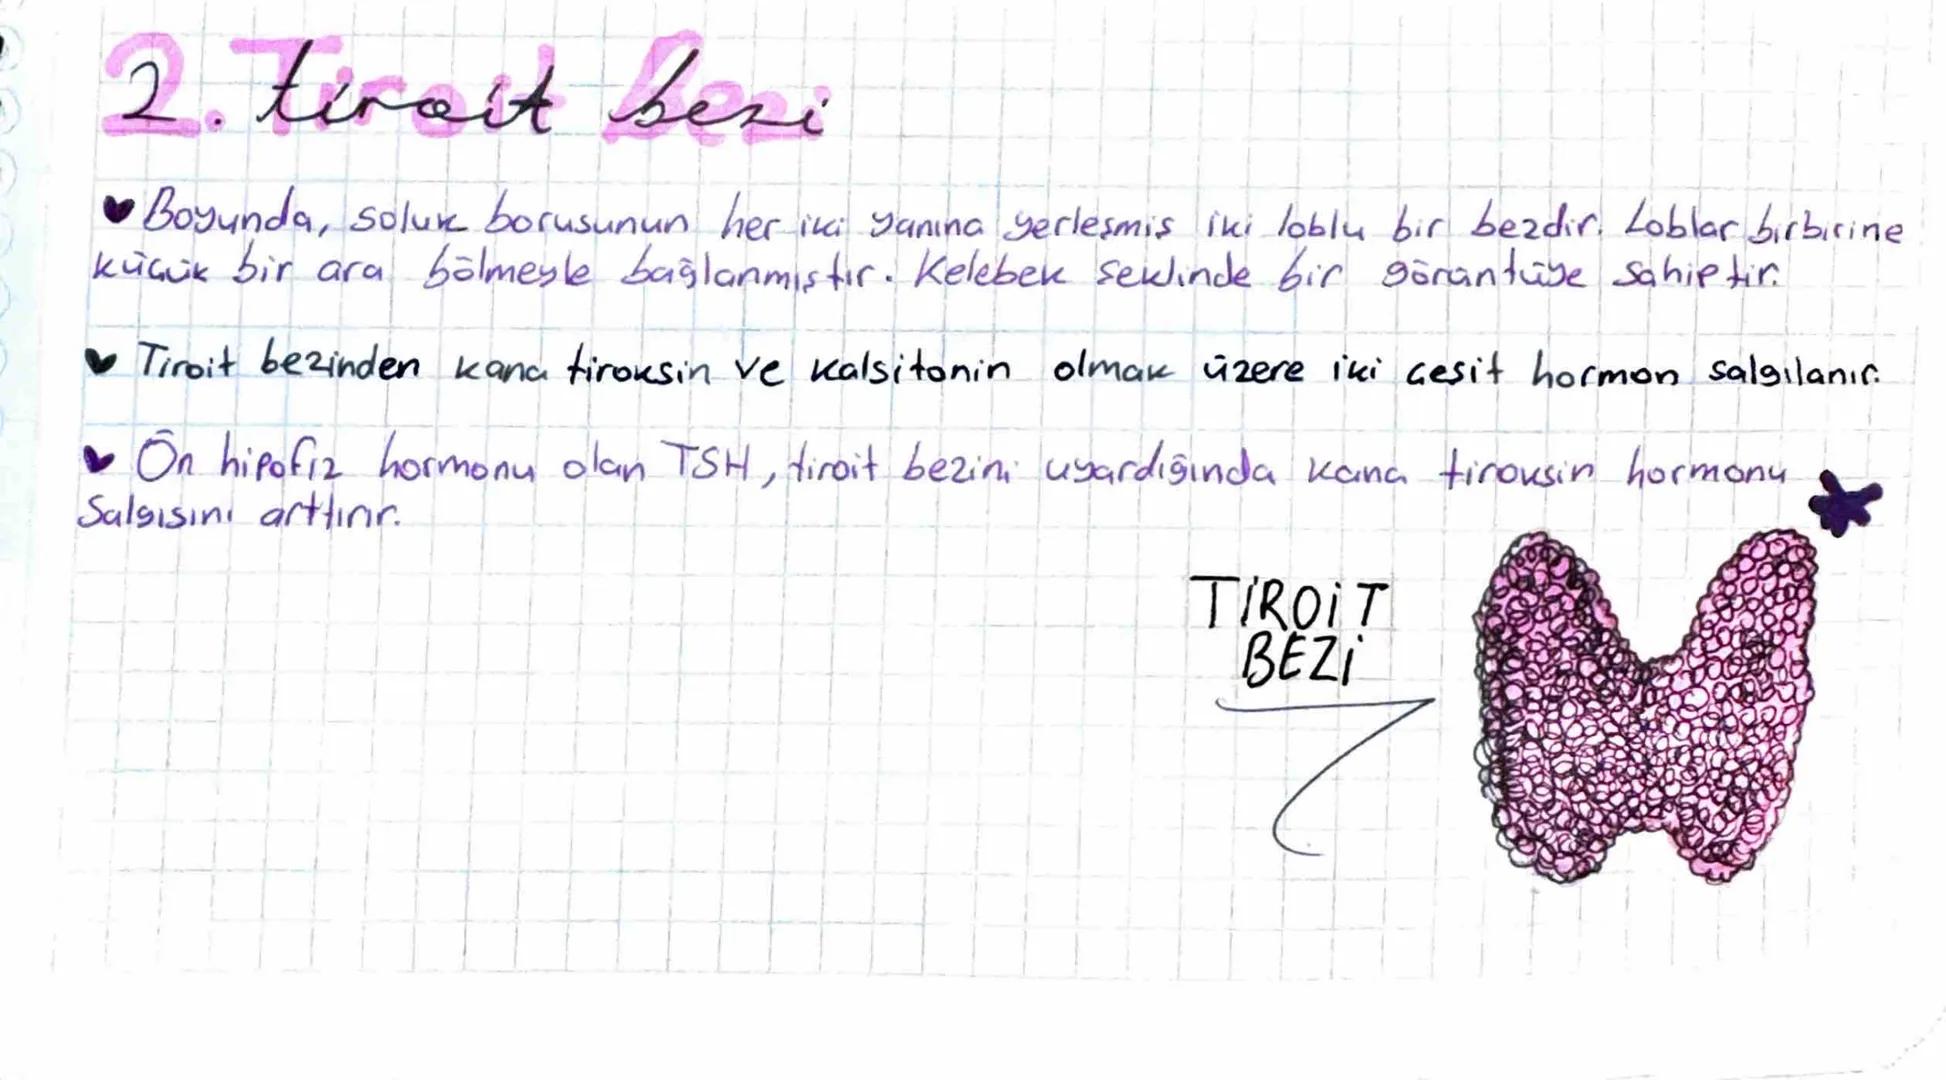 2. Tiroit bezi
Boyunda, soluk borusunun her iki yanına yerleşmiş iki loblu bir bezdir. Loblar birbirine
küçük bir ara bölmeyle bağlanmıştır. Kelebek seklinde bir görüntüye sahiptir.
Tiroit bezinden kana tiroksin ve kalsitonin olmak üzere iki çesit hormon salgılanır.
Ön hipofiz hormonu olan TSH, tiroit bezini uyardığında kana tiroksin hormonu
Salgısını arttırır.
TİROİT
BEZİ